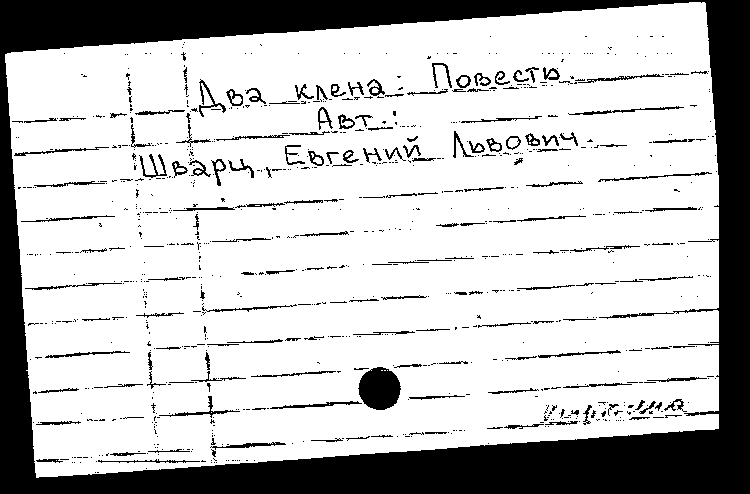 Два клена: Повесть.
Авт.:
Шварц, Евгений Львович.